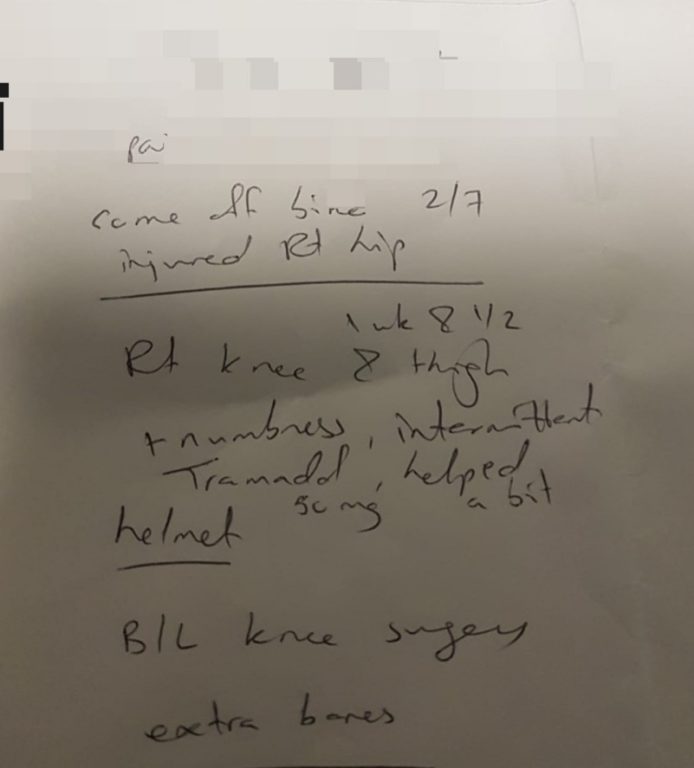 pai
came off bike 2/7
injured Rt hip
1 wk & 1/2
Rt knee & thigh
+ numbness, intermittent
Tramadol, helped
50 mg a bit
helmet
B/L knee surgery
extra bones